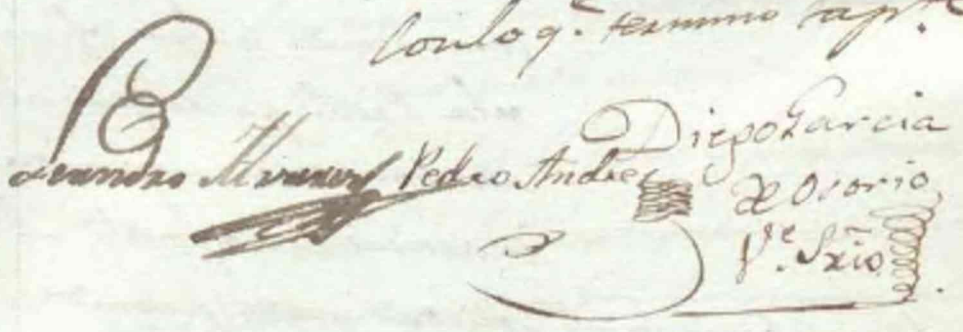 Con lo q.e termino la
Leandro Pedro Andres Diego Garcia
de Osorio
V.e Srio